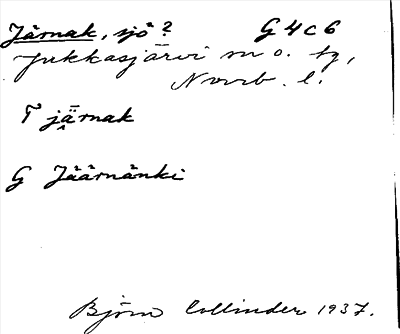 Järnak, sjö? G4c6
Jukkasjärvi sn o. tg,
Norrb. l.
T jä̂rnak
G Jäärnänki
Björn Collinder 1937.